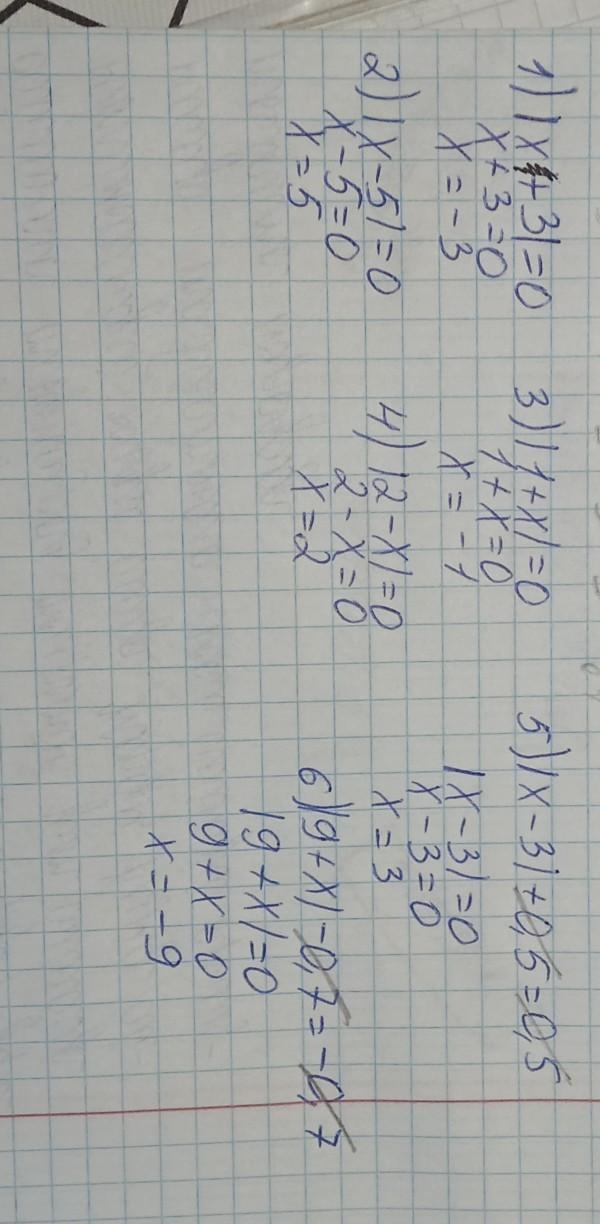 1) |x+3|=0
x+3=0
x=-3
2) |x-5|=0
x-5=0
x=5
3) |1+x|=0
1+x=0
x=-1
4) |2-x|=0
2-x=0
x=2
5) |x-3|+0,5=0,5
|x-3|=0
x-3=0
x=3
6) |9+x|-0,7=-0,7
|9+x|=0
9+x=0
x=-9